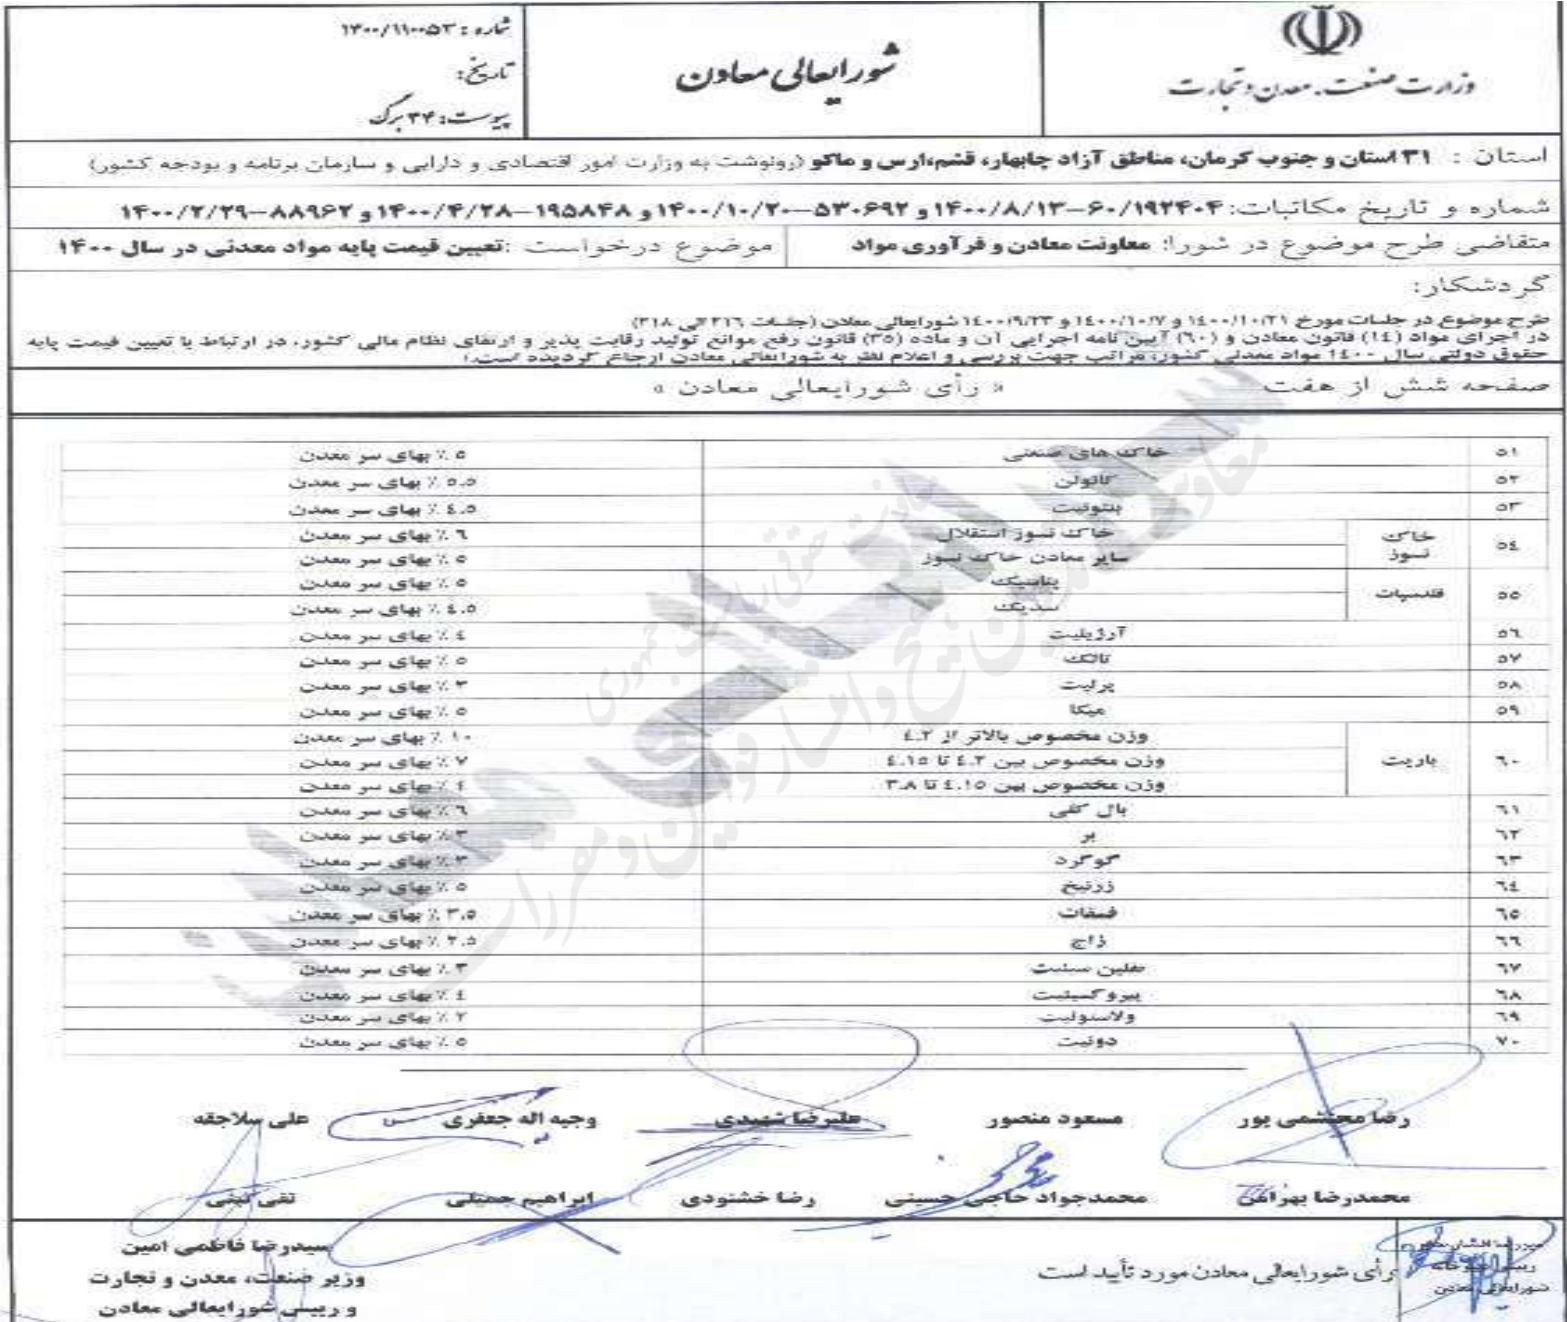 وزارت صنعت، معدن و تجارت
شورایعالی معادن
شماره : ۱۴۰۰/۱۱۰۰۵۳
تاریخ:
پیوست: ۳۴ برگ
استان : ۳۱ استان و جنوب کرمان، مناطق آزاد چابهار، قشم،ارس و ماکو (رونوشت به وزارت امور اقتصادی و دارایی و سازمان برنامه و بودجه کشور)
شماره و تاریخ مکاتبات: ۶۰/۱۹۲۴۰۴-۱۴۰۰/۸/۱۳ و ۵۳۰۶۹۲-۱۴۰۰/۱۰/۲۰ و ۱۹۵۸۴۸-۱۴۰۰/۴/۲۸ و ۸۸۹۶۲-۱۴۰۰/۲/۲۹
متقاضی طرح موضوع در شورا: معاونت معادن و فرآوری مواد
موضوع درخواست :تعیین قیمت پایه مواد معدنی در سال ۱۴۰۰
گردشکار:
طرح موضوع در جلسات مورخ ۱٤۰۰/۱۰/۲۱ و ۱٤۰۰/۱۰/۷ و ۱٤۰۰/۹/۲۳ شورایعالی معادن (جلسات ۳۱٦ الی ۳۱۸)
در اجرای مواد (۱٤) قانون معادن و (٦۰) آیین نامه اجرایی آن و ماده (۳۵) قانون رفع موانع تولید رقابت پذیر و ارتقای نظام مالی کشور، در ارتباط با تعیین قیمت پایه
حقوق دولتی سال ۱٤۰۰ مواد معدنی کشور، مراتب جهت بررسی و اعلام نظر به شورایعالی معادن ارجاع گردیده است.
صفحه شش از هفت
« رأی شورایعالی معادن »
۵۱ خاک های صنعتی ۵ ٪ بهای سر معدن
۵۲ کائولن ۵.۵ ٪ بهای سر معدن
۵۳ بنتونیت ٤.۵ ٪ بهای سر معدن
۵٤ خاک نسوز خاک نسوز استقلال ٦ ٪ بهای سر معدن
سایر معادن خاک نسوز ۵ ٪ بهای سر معدن
۵۵ فلدسپات پتاسیک ۵ ٪ بهای سر معدن
سدیک ٤.۵ ٪ بهای سر معدن
۵٦ آرژیلیت ٤ ٪ بهای سر معدن
۵۷ تالک ۵ ٪ بهای سر معدن
۵۸ پرلیت ۳ ٪ بهای سر معدن
۵۹ میکا ۵ ٪ بهای سر معدن
٦۰ باریت وزن مخصوص بالاتر از ٤.۲ ۱۰ ٪ بهای سر معدن
وزن مخصوص بین ٤.۲ تا ٤.۱۵ ۷ ٪ بهای سر معدن
وزن مخصوص بین ٤.۱۵ تا ۳.۸ ٤ ٪ بهای سر معدن
٦۱ بال کلی ٦ ٪ بهای سر معدن
٦۲ بر ۳ ٪ بهای سر معدن
٦۳ گوگرد ۳ ٪ بهای سر معدن
٦٤ زرنیخ ۵ ٪ بهای سر معدن
٦۵ فسفات ۳.۵ ٪ بهای سر معدن
٦٦ زاج ۲.۵ ٪ بهای سر معدن
٦۷ نفلین سینیت ۳ ٪ بهای سر معدن
٦۸ پیروکسینیت ٤ ٪ بهای سر معدن
٦۹ ولاستونیت ۲ ٪ بهای سر معدن
۷۰ دونیت ۵ ٪ بهای سر معدن
رضا محتشمی پور
مسعود منصور
علیرضا شهیدی
وجیه اله جعفری
علی سلاجقه
محمدرضا بهرامن
محمدجواد حاجی حسینی
رضا خشنودی
ابراهیم جمیلی
تقی نبئی
رأی شورایعالی معادن مورد تأیید است
شورایعالی معادن
سیدرضا فاطمی امین
وزیر صنعت، معدن و تجارت
و رییس شورایعالی معادن